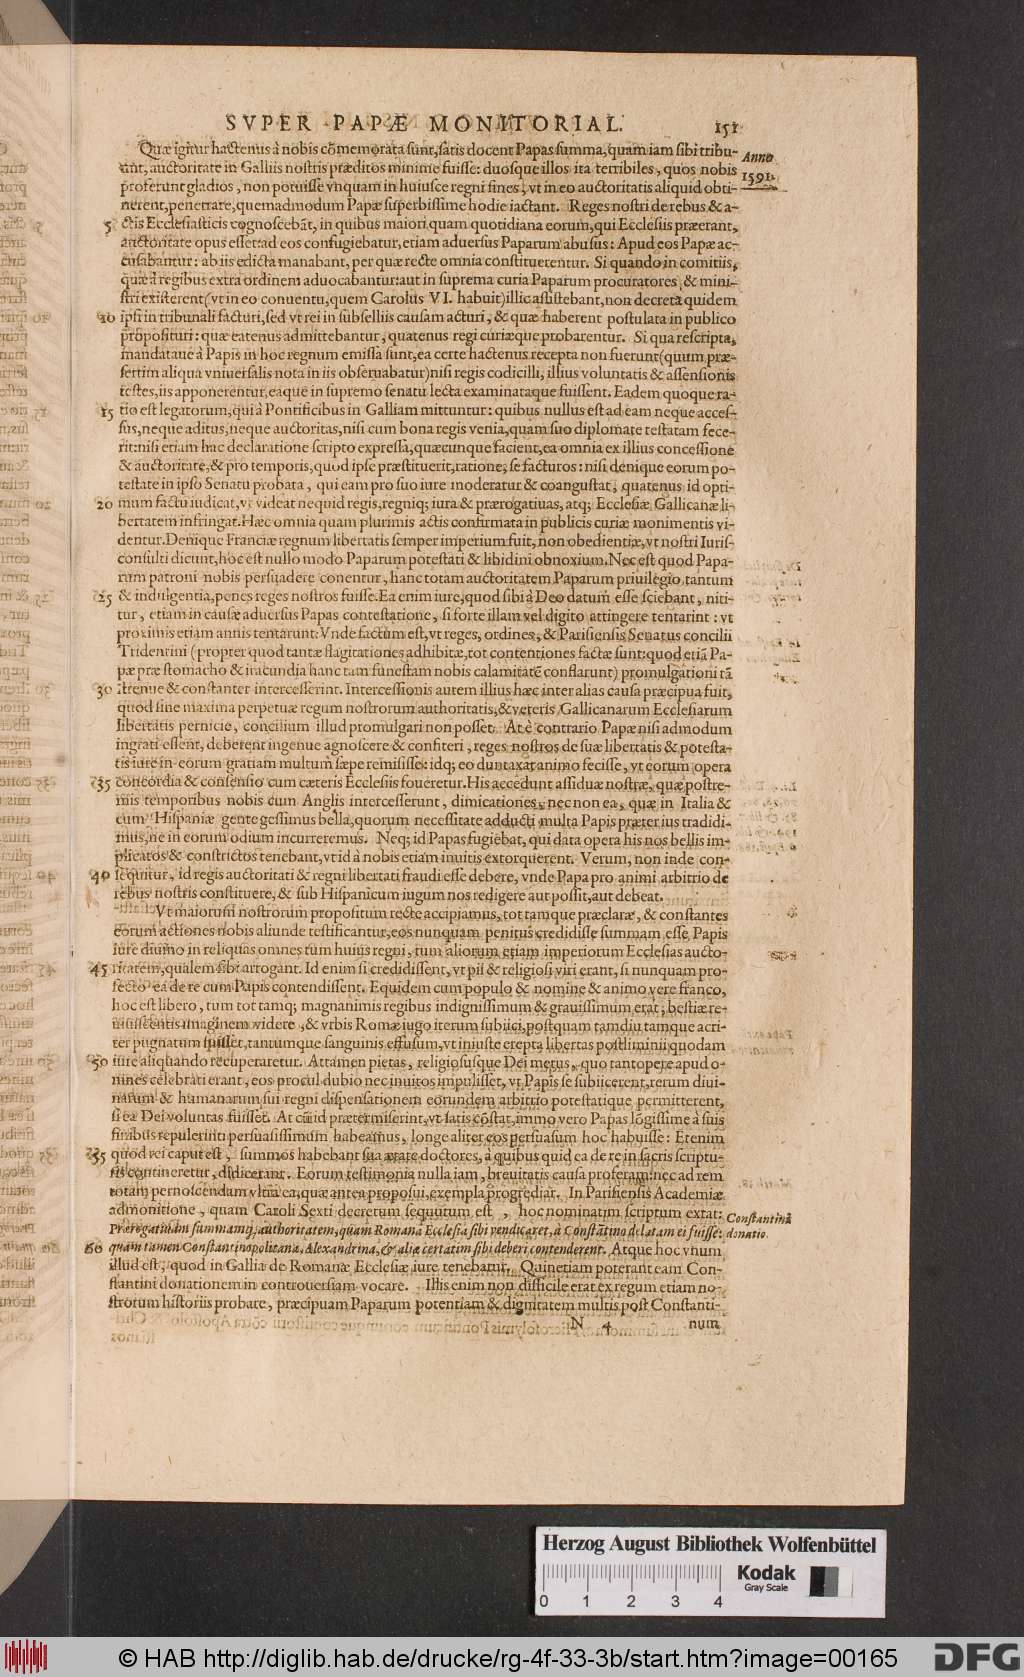 SVPER PAPÆ MONITORIAL. 151
Quæ igitur hactenus à nobis cõmemorata sunt, satis docent Papas summa, quam iam sibi tribu-
unt, auctoritate in Galliis nostris præditos minime fuisse: duosque illos ita terribiles, quos nobis
proferunt gladios, non potuisse vnquam in huiusce regni fines, vt in eo auctoritatis aliquid obti-
nerent, penetrare, quemadmodum Papæ superbissime hodie iactant. Reges nostri de rebus & a-
5 ctis Ecclesiasticis cognoscebāt, in quibus maiori quam quotidiana eorum, qui Ecclesiis præerant,
auctoritate opus esset: ad eos confugiebatur, etiam aduersus Paparum abusus: Apud eos Papæ ac-
cusabantur: ab iis edicta manabant, per quæ recte omnia constituerentur. Si quando in comitiis,
quæ à regibus extra ordinem aduocabantur: aut in suprema curia Paparum procuratores, & mini-
stri existerent (vt in eo conuentu, quem Carolus VI. habuit) illic assistebant, non decreta quidem
10 ipsi in tribunali facturi, sed vt rei in subselliis causam acturi, & quæ haberent postulata in publico
proposituri: quæ eatenus admittebantur, quatenus regi curiæque probarentur. Si qua rescripta,
mandataue à Papis in hoc regnum emissa sunt, ea certe hactenus recepta non fuerunt (quum præ-
sertim aliqua vniuersalis nota in iis obseruabatur) nisi regis codicilli, illius voluntatis & assensionis
testes, iis apponerentur, eaque in supremo senatu lecta examinataque fuissent. Eadem quoque ra-
15 tio est legatorum, qui à Pontificibus in Galliam mittuntur: quibus nullus est ad eam neque acces-
sus, neque aditus, neque auctoritas, nisi cum bona regis venia, quam suo diplomate testatam fece-
rit: nisi etiam hac declaratione scripto expressa, quæcunque facient, ea omnia ex illius concessione
& auctoritate, & pro temporis, quod ipse præstituerit, ratione, se facturos: nisi denique eorum po-
testate in ipso Senatu probata, qui eam pro suo iure moderatur & coangustat; quatenus id opti-
20 mum factu iudicat, vt videat nequid regis, regniq; iura & prærogatiuas, atq; Ecclesiæ Gallicanæ li-
bertatem infringat. Hæc omnia quam plurimis actis confirmata in publicis curiæ monimentis vi-
dentur. Denique Franciæ regnum libertatis semper imperium fuit, non obedientiæ, vt nostri Iuris-
consulti dicunt, hoc est nullo modo Paparum potestati & libidini obnoxium. Nec est quod Papa-
rum patroni nobis persuadere conentur, hanc totam auctoritatem Paparum priuilegio tantum
25 & indulgentia, penes reges nostros fuisse. Ea enim iure, quod sibi à Deo datum esse sciebant, niti-
tur, etiam in causæ aduersus Papas contestatione, si forte illam vel digito attingere tentarint: vt
proximis etiam annis tentarunt: Vnde factum est, vt reges, ordines, & Parisiensis Senatus concilii
Tridentini (propter quod tantæ flagitationes adhibitæ, tot contentiones factæ sunt: quod etiã Pa-
pæ præ stomacho & iracundia hanc tam funestam nobis calamitatē conflarunt) promulgationi tã
30 strenue & constanter intercesserint. Intercessionis autem illius hæc inter alias causa præcipua fuit,
quod sine maxima perpetuæ regum nostrorum authoritatis, & veteris Gallicanarum Ecclesiarum
libertatis pernicie, concilium illud promulgari non posset. At è contrario Papæ nisi admodum
ingrati essent, deberent ingenue agnoscere & confiteri, reges nostros de suæ libertatis & potesta-
tis iure in eorum gratiam multum sæpe remisisse: idq; eo duntaxat animo fecisse, vt eorum opera
35 concordia & consensio cum cæteris Ecclesiis foueretur. His accedunt assiduæ nostræ, quæ postre-
mis temporibus nobis cum Anglis intercesserunt, dimicationes, nec non ea, quæ in Italia &
cum Hispaniæ gente gessimus bella, quorum necessitate adducti multa Papis præter ius tradidi-
mus, ne in eorum odium incurreremus. Neq; id Papas fugiebat, qui data opera his nos bellis im-
plicatos & constrictos tenebant, vt id à nobis etiam inuitis extorquerent. Verum, non inde con-
40 sequitur, id regis auctoritati & regni libertati fraudi esse debere, vnde Papa pro animi arbitrio de
rebus nostris constituere, & sub Hispanicum iugum nos redigere aut possit, aut debeat.
Vt maiorum nostrorum propositum recte accipiamus, tot tamque præclaræ, & constantes
eorum actiones nobis aliunde testificantur, eos nunquam penitus credidisse summam esse Papis
iure diuino in reliquas omnes tum huius regni, tum aliorum etiam imperiorum Ecclesias aucto-
45 ritatem, qualem sibi arrogant. Id enim si credidissent, vt pii & religiosi viri erant, si nunquam pro-
fecto ea de re cum Papis contendissent. Equidem cum populo & nomine & animo vere franco,
hoc est libero, tum tot tamq; magnanimis regibus indignissimum & grauissimum erat, bestiæ re-
uiuiscentis imaginem videre, & vrbis Romæ iugo iterum subiici, postquam tamdiu tamque acri-
ter pugnatum fuisset, tantumque sanguinis effusum, vt iniuste erepta libertas postliminii quodam
50 iure aliquando recuperaretur. Attamen pietas, religiosusque Dei metus, quo tantopere apud o-
mnes celebrati erant, eos procul dubio nec inuitos impulisset, vt Papis se subiicerent, rerum diui-
narum & humanarum sui regni dispensationem eorundem arbitrio potestatique permitterent,
si ea Dei voluntas fuisset. At cũ id prætermiserint, vt satis cōstat, immo vero Papas lōgissime à suis
finibus repulerint: persuasissimum habeamus, longe aliter eos persuasum hoc habuisse: Etenim
55 quod rei caput est, summos habebant sua ætate doctores, à quibus quid ea de re in sacris scriptu-
ris contineretur, didicerint. Eorum testimonia nulla iam, breuitatis causa proferam: nec ad rem
totam pernoscendam vltra ea, quæ antea proposui, exempla progrediar. In Parisiensis Academiæ
admonitione, quam Caroli Sexti decretum sequutum est, hoc nominatim scriptum extat:
Prærogatiuam summamq; authoritatem, quam Romana Ecclesia sibi vendicaret, à Constātino delatam ei fuisse:
60 quam tamen Constantinopolitana, Alexandrina, & aliæ certatim sibi deberi contenderent. Atque hoc vnum
illud est, quod in Gallia de Romanæ Ecclesiæ iure tenebatur. Quinetiam poterant eam Con-
stantini donationem in controuersiam vocare. Illis enim non difficile erat ex regum etiam no-
strorum historiis probare, præcipuam Paparum potentiam & dignitatem multis post Constanti-
N 4 num
Anno
1591.
Constantini
donatio.
Herzog August Bibliothek Wolfenbüttel
0 1 2 3 4
Kodak
Gray Scale
© HAB http://diglib.hab.de/drucke/rg-4f-33-3b/start.htm?image=00165
DFG